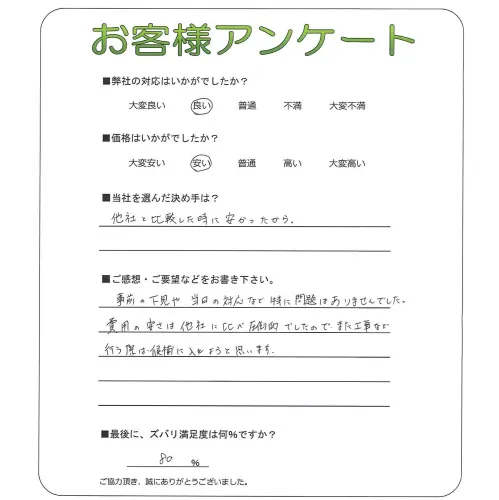 お客様アンケート
■弊社の対応はいかがでしたか?
大変良い 良い 普通 不満 大変不満
■価格はいかがでしたか?
大変安い 安い 普通 高い 大変高い
■当社を選んだ決め手は?
他社と比較した時に安かったから。
■ご感想・ご要望などをお書き下さい。
事前の下見や当日の対応など特に問題はありませんでした。
費用の安さは他社に比べ圧倒的でしたので、また工事など
行う際は候補に入れようと思います。
■最後に、ズバリ満足度は何%ですか?
80 %
ご協力頂き、誠にありがとうございました。